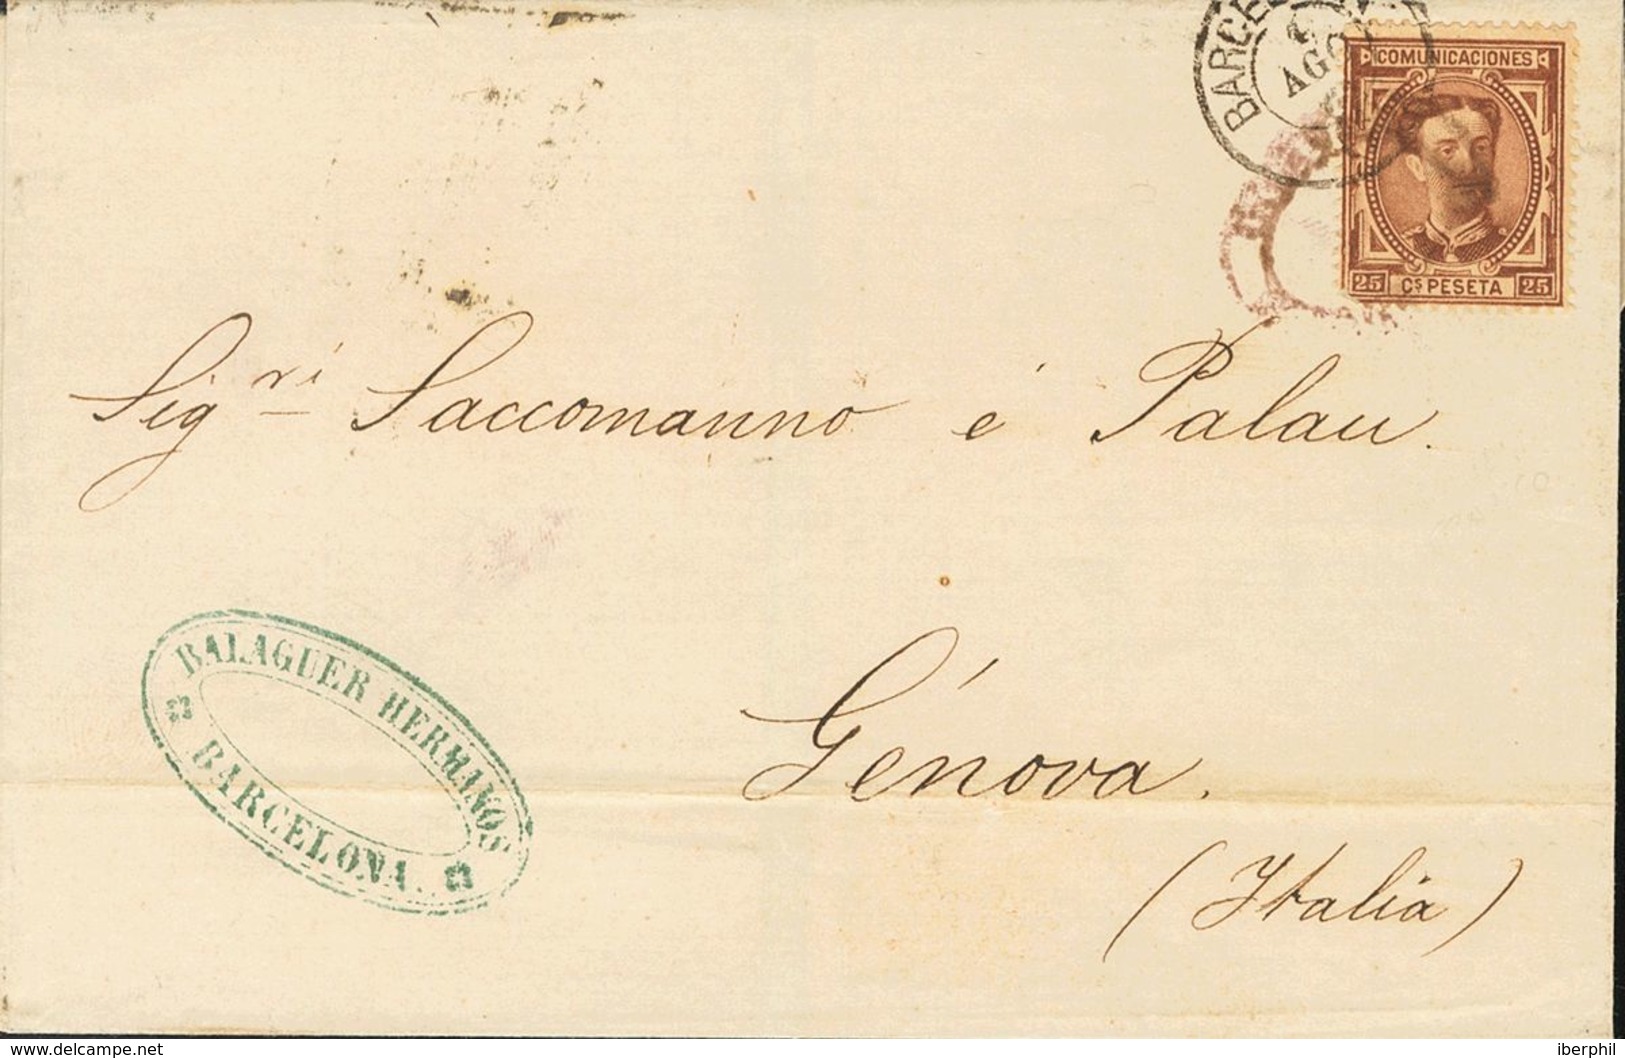 BARCE
AGO
COMUNICACIONES
25 Cs PESETA 25
Sigri Saccomanno é Palau.
BALAGUER HERMANOS
BARCELONA.
Génova.
(Italia)
delcampe.net
iberphil